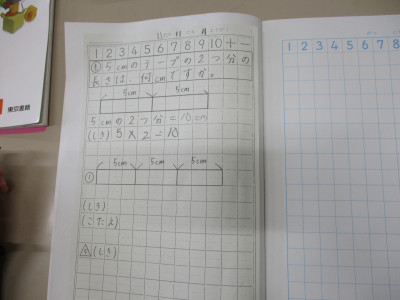 東京書籍
1 2 3 4 5 6 7 8 9 10 + −
① 5cmのテープの2つ分の
長さは、何cmですか。
5cm 5cm
5cmの2つ分=10cm
(しき) 5×2=10
5cm 5cm 5cm
①
(しき)
(こたえ)
(しき)
1 2 3 4 5 6 7 8